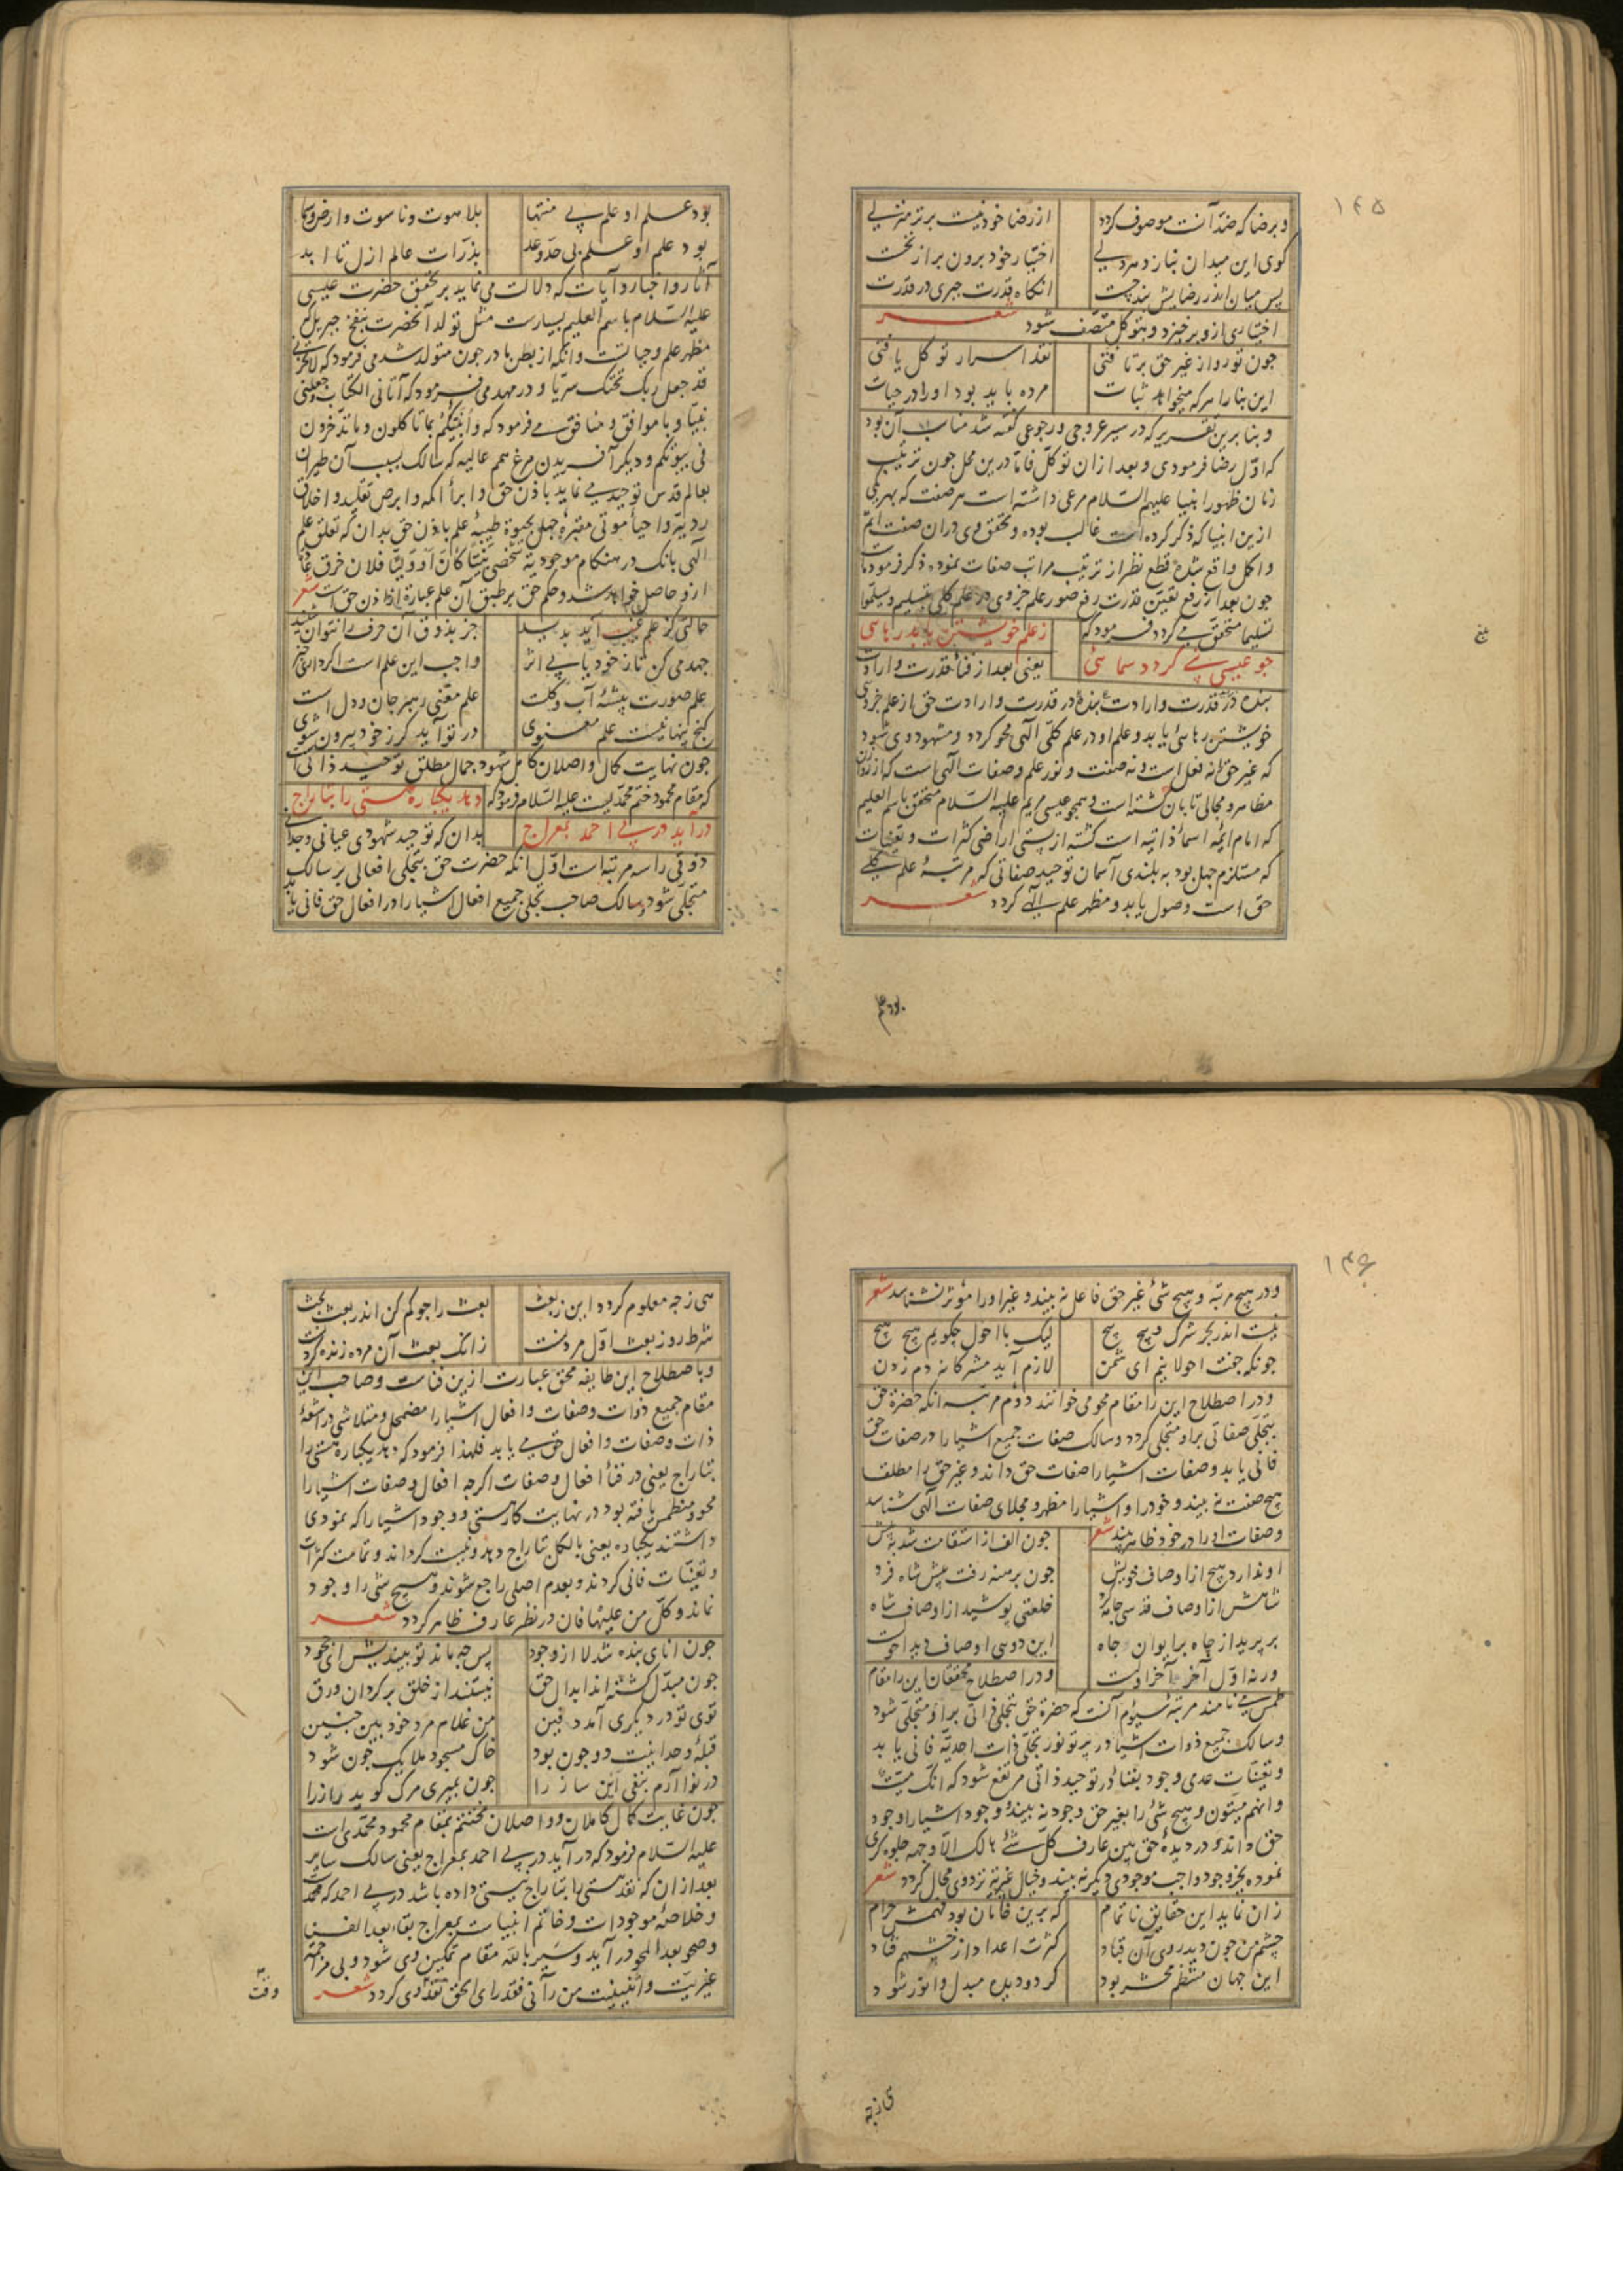 ۱۴۵
وبرضا که ضد آنست موصوف گردد از رضا خود نیست برتر منزلی
گوی این میدان نبازد هر دلی اختیار خود برون بر از نخست
پس میان اندر رضایش بند چست آنگاه قدرت جبری در قدرت
اختیاری ازو برخیزد و بتوکل متصف شود شعر
چون تو رو از غیر حق برتافتی نقد اسرار توکل یافتی
این بنا را هر که میخواهد ثبات مرده باید بود او را در حیات
و بنا برین تقریر که در سیر عروجی و رجوعی گفته شد مناسب آن بود
که اول رضا فرمودی و بعد از ان توکل فاما درین محل چون ترتیب
زمان ظهور انبیا علیهم السلام مرعی داشته است هر صفت که بهر یکی
ازین انبیا که ذکر کرده است غالب بوده و تحقق وی دران صفت اتم
و اکمل واقع شده قطع نظر از ترتیب مراتب صفات نموده ذکر فرموده است
چون بعد از رفع تعین قدرت رفع صور علم جزوی در علم کلی بتسلیم ویسلموا
تسلیما متحقق می گردد فرمود که ز علم خویشتن یابد رهایی
چو عیسی نبی گردد سمائی یعنی بعد از فناء قدرت و ارادت
بنده در قدرت و ارادت حق از علم جزوی
خویشتن رهائی یابد و علم او در علم کلی الهی محو گردد و مشهود وی شود
که غیر حق را نه فعل است و نه صفت و نور علم وصفات الهی است که از روزن
مظاهر و مجالی تابان گشته است و همچو عیسی مریم علیه السلام متحقق باسم العلیم
که امام ائمه اسماء ذاتیه است گشته از پستی اراضی کثرات و تعینات
که مستلزم جهل بود به بلندی آسمان توحید صفاتی که مرتبۀ علم کلی
حق است وصول یابد و مظهر علم الهی گردد شعر
بلغ
بود علم
بود علم او علم بی منتها بلاهوت وناسوت وارض وسما
بود علم او علم بی حد وعد بذرات عالم ازل تا ابد
آثار واخبار و آیات که دلالت می نماید بر تحقق حضرت عیسی
علیه السلام باسم العلیم بسیارست مثل تولد آنحضرت بنفخ جبریل که
مظهر علم وحیاتست وانکه از بطن مادر چون متولد شد می فرمود که لاتحزنی
قد جعل ربک تحتک سریا و در مهد می فرمود که آتانی الکتاب وجعلنی
نبیا و با موافق و منافق می فرمود که وانبئکم بما تاکلون وما تدخرون
فی بیوتکم و دیگر آفریدن مرغ همم عالیه که سالک بسبب آن طیران
بعالم قدس توحید می نماید باذن حق وابرأ اکمه وابرص تقلید و اخلاق
ردیه و احیاء موتی مقبرۀ جهل بحیوة طیبۀ علم باذن حق بدان که تعلق علم
الهی بانک در هنگام موجودیة شخصی نبیا کان او ولیا فلان خرق عادة
ازو حاصل خواهد شد وحکم حق بر طبق آن علم عبارة از اذن حق است شعر
حالتی کز علم غیب آید پدید جز بذوق آن حرف را نتوان شنید
جهد می کن تا ز خود یابی اثر واجب این علم است اگر داری خبر
علم صورت پیشۀ آب وگلست علم معنی رهبر جان ودل است
گنج پنهانیست علم معنوی در تو آید گر ز خود بیرون شوی
چون نهایت کمال واصلان کامل شهود جمال مطلق توحید ذاتی است
که مقام محمود ختم محمدیست علیه السلام فرمود که دهد یکباره هستی را بتاراج
درآید در پی احمد بمعراج بدان که توحید شهودی عیانی وجدانی
ذوقی را سه مرتبه است اول آنکه حضرت حق بتجلی افعالی بر سالک
متجلی شود وسالک صاحب تجلی جمیع افعال اشیا را در افعال حق فانی یابد
۱۴۶
و در هیچ مرتبه و هیچ شئ غیر حق فاعل نه بیند و غیر او را مؤثر نشناسد شعر
نیست اندر بحر شرک و پیچ پیچ لیک با احول چگویم هیچ هیچ
چونکه جفت احولانیم ای شمن لازم آید مشرکانه دم زدن
و در اصطلاح این را مقام محو می خوانند دوم مرتبه آنکه حضرة حق
بتجلی صفاتی برو متجلی گردد وسالک صفات جمیع اشیا را در صفات حق
فانی یابد وصفات اشیا را صفات حق داند و غیر حق را مطلقا
هیچ صفت نه بیند و خود را و اشیا را مظهر و مجلای صفات الهی شناسد
وصفات او را در خود ظاهر بیند شعر چون الف از استقامت شد به پیش
او ندارد هیچ از اوصاف خویش چون برهنه رفت پیش شاه فرد
شاهش از اوصاف قدسی جامه کرد خلعتی پوشید از اوصاف شاه
بر پرید از چاه بر ایوان جاه این دوی اوصاف دید احولست
ورنه اول آخر آخر اولست و در اصطلاح محققان این را مقام
طمس می نامند مرتبۀ سیوم آنست که حضرة حق بتجلی ذاتی براو متجلی شود
وسالک جمیع ذوات اشیا در پرتو نور تجلی ذات احدیة فانی یابد
وتعینات عدمی وجود بفناء در توحید ذاتی مرتفع شود که انک میت
وانهم میتون و هیچ شئ را بغیر حق وجود نه بیند و وجود اشیا را وجود
حق داند و در دیدۀ حق بین عارف کل شئ هالک الا وجهه جلوه گری
نموده بجز وجود واجب موجودی دیگر نه بیند و خیال غیریة نزد وی محال گردد شعر
زان نماید این حقایق ناتمام که برین خامان بود فهمش حرام
چشم من چون دید روی آن قباد کثرت اعداد از چشمم فتاد
این جهان منتظم محشر بود گر دو دیده مبدل و انور شود
می ز چه
می ز چه معلوم گردد این ز بعث بعث را جو کم کن اندر بعث بحث
شرط روز بعث اول مردنست زانک بعث آن مرده زنده کردنست
و باصطلاح این طایفه محق عبارت ازین فناست وصاحب این
مقام جمیع ذوات وصفات وافعال اشیا را مضمحل ومتلاشی در اشعۀ
ذات وصفات وافعال حق می یابد فلهذا فرمود که دهد یکباره هستی را
بتاراج یعنی در فناء افعال وصفات اگرچه افعال وصفات اشیا را
محو و منطمس یافته بود در نهایت کار هستی و وجود اشیا را که نمودی
داشتند یکباره یعنی بالکل بتاراج دهد ونیست گرداند وتمامت کثرات
وتعینات فانی گردند و بعدم اصلی راجع شوند وهیچ شئ را وجود
نماند وکل من علیها فان در نظر عارف ظاهر گردد شعر
چون انای بنده شد لا از وجود پس چه ماند تو بیندیش ای جحود
چون مبدل گشته اند ابدال حق نیستند از خلق برگردان ورق
توی تو در دیگری آمد دفین من غلام مرد خود بین چنین
قبلۀ وحدانیت دو چون بود خاک مسجود ملایک چون شود
در نوا آرم بنفی این ساز را چون بمیری مرگ گوید راز را
چون غایت کمال کاملان و واصلان مختتم بمقام محمود محمدی است
علیه السلام فرمود که درآید در پی احمد بمعراج یعنی سالک سایر
بعد از ان که نقد هستی را بتاراج نیستی داده باشد در پی احمد که محمد است
وخلاصۀ موجودات وخاتم انبیاست بمعراج بقاء بعد الفنا
وصحو بعد المحو در آید وسیر بالله مقام تمکین وی شود و بی مزاحمت
غیریت و اثنینیت من رآنی فقد رای الحق نقد وی گردد شعر
وقف